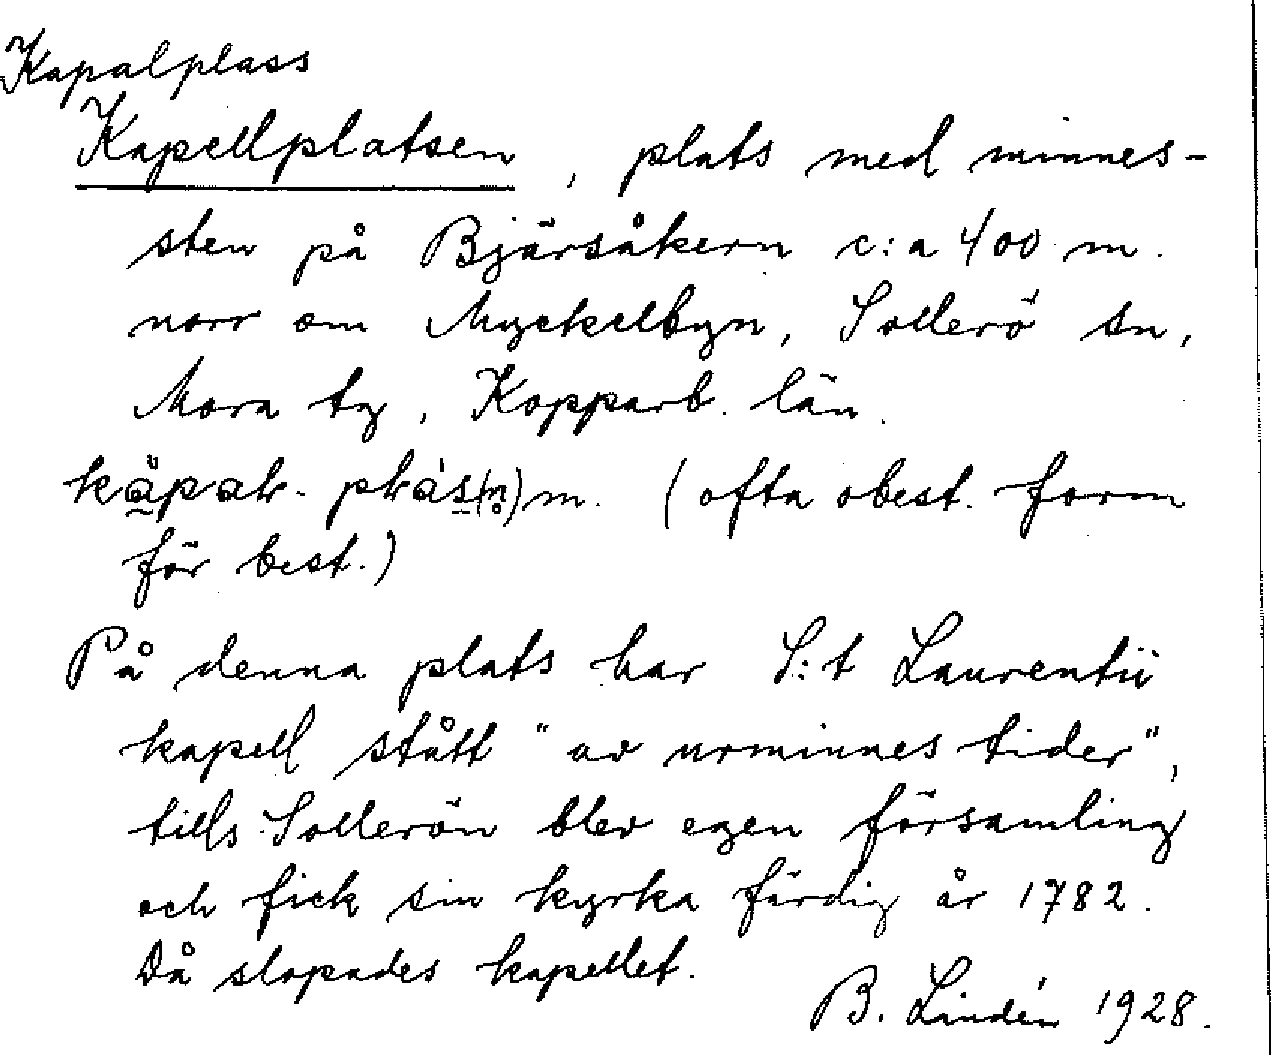 Kapalplass
Kapellplatsen, plats med minnes-
sten på Bjärsåkern c:a 400 m.
norr om Myckelbyn, Sollerö sn,
Mora tg, Kopparb. län.
m. (ofta obest. form
för best.)
På denna plats har S:t Laurentii
kapell stått "av urminnes tider",
tills Sollerön blev egen församling
och fick sin kyrka färdig år 1782.
Då slopades kapellet.
B. Lindén 1928.